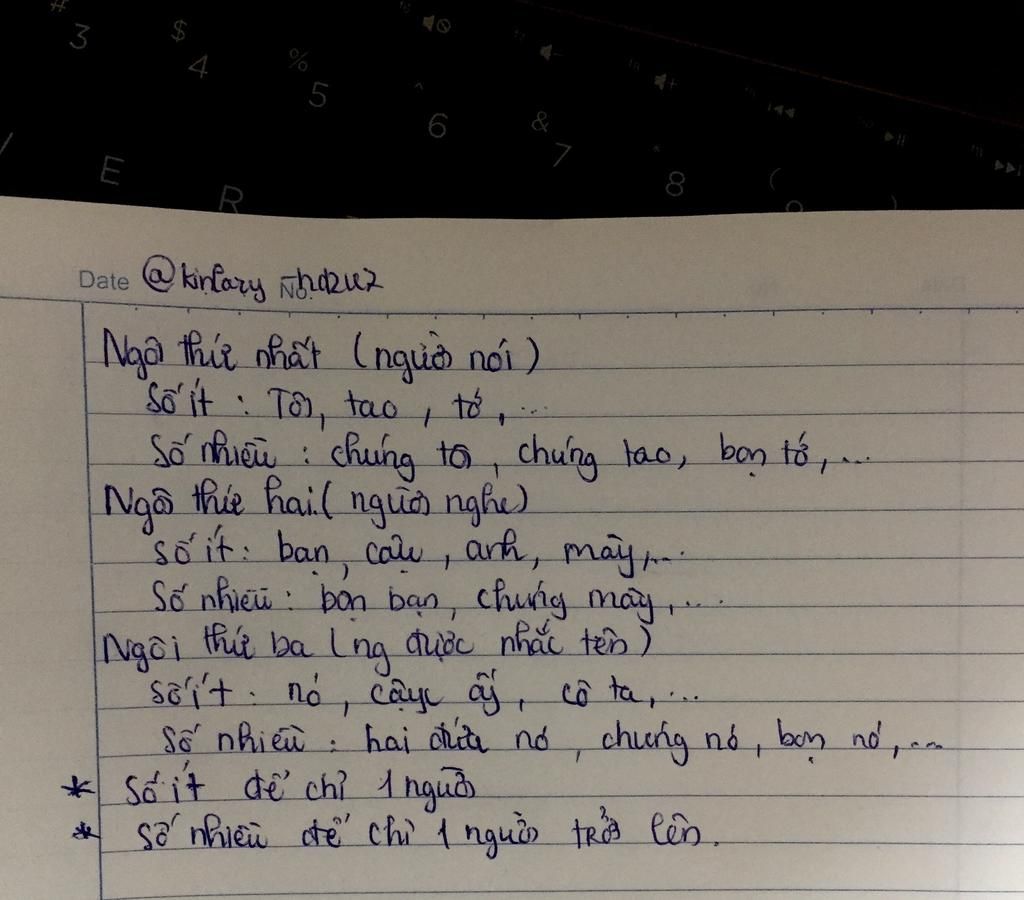 # $ % ^ & * ( )
3 4 5 6 7 8 9
E R
Date @kinlazy No. _hd2u2
Ngôi thứ nhất (người nói)
Số ít : Tôi, tao, tớ, ...
Số nhiều : chúng tôi, chúng tao, bọn tớ, ...
Ngôi thứ hai.( người nghe)
Số ít : bạn, cậu, anh, mày,...
Số nhiều : bọn bạn, chúng mày, ...
Ngôi thứ ba (ng được nhắc tên)
Số ít : nó, cậu ấy, cô ta, ...
Số nhiều : hai đứa nó, chúng nó, bọn nó, ...
* Số ít để chỉ 1 người
* Số nhiều để chỉ 1 người trở lên.